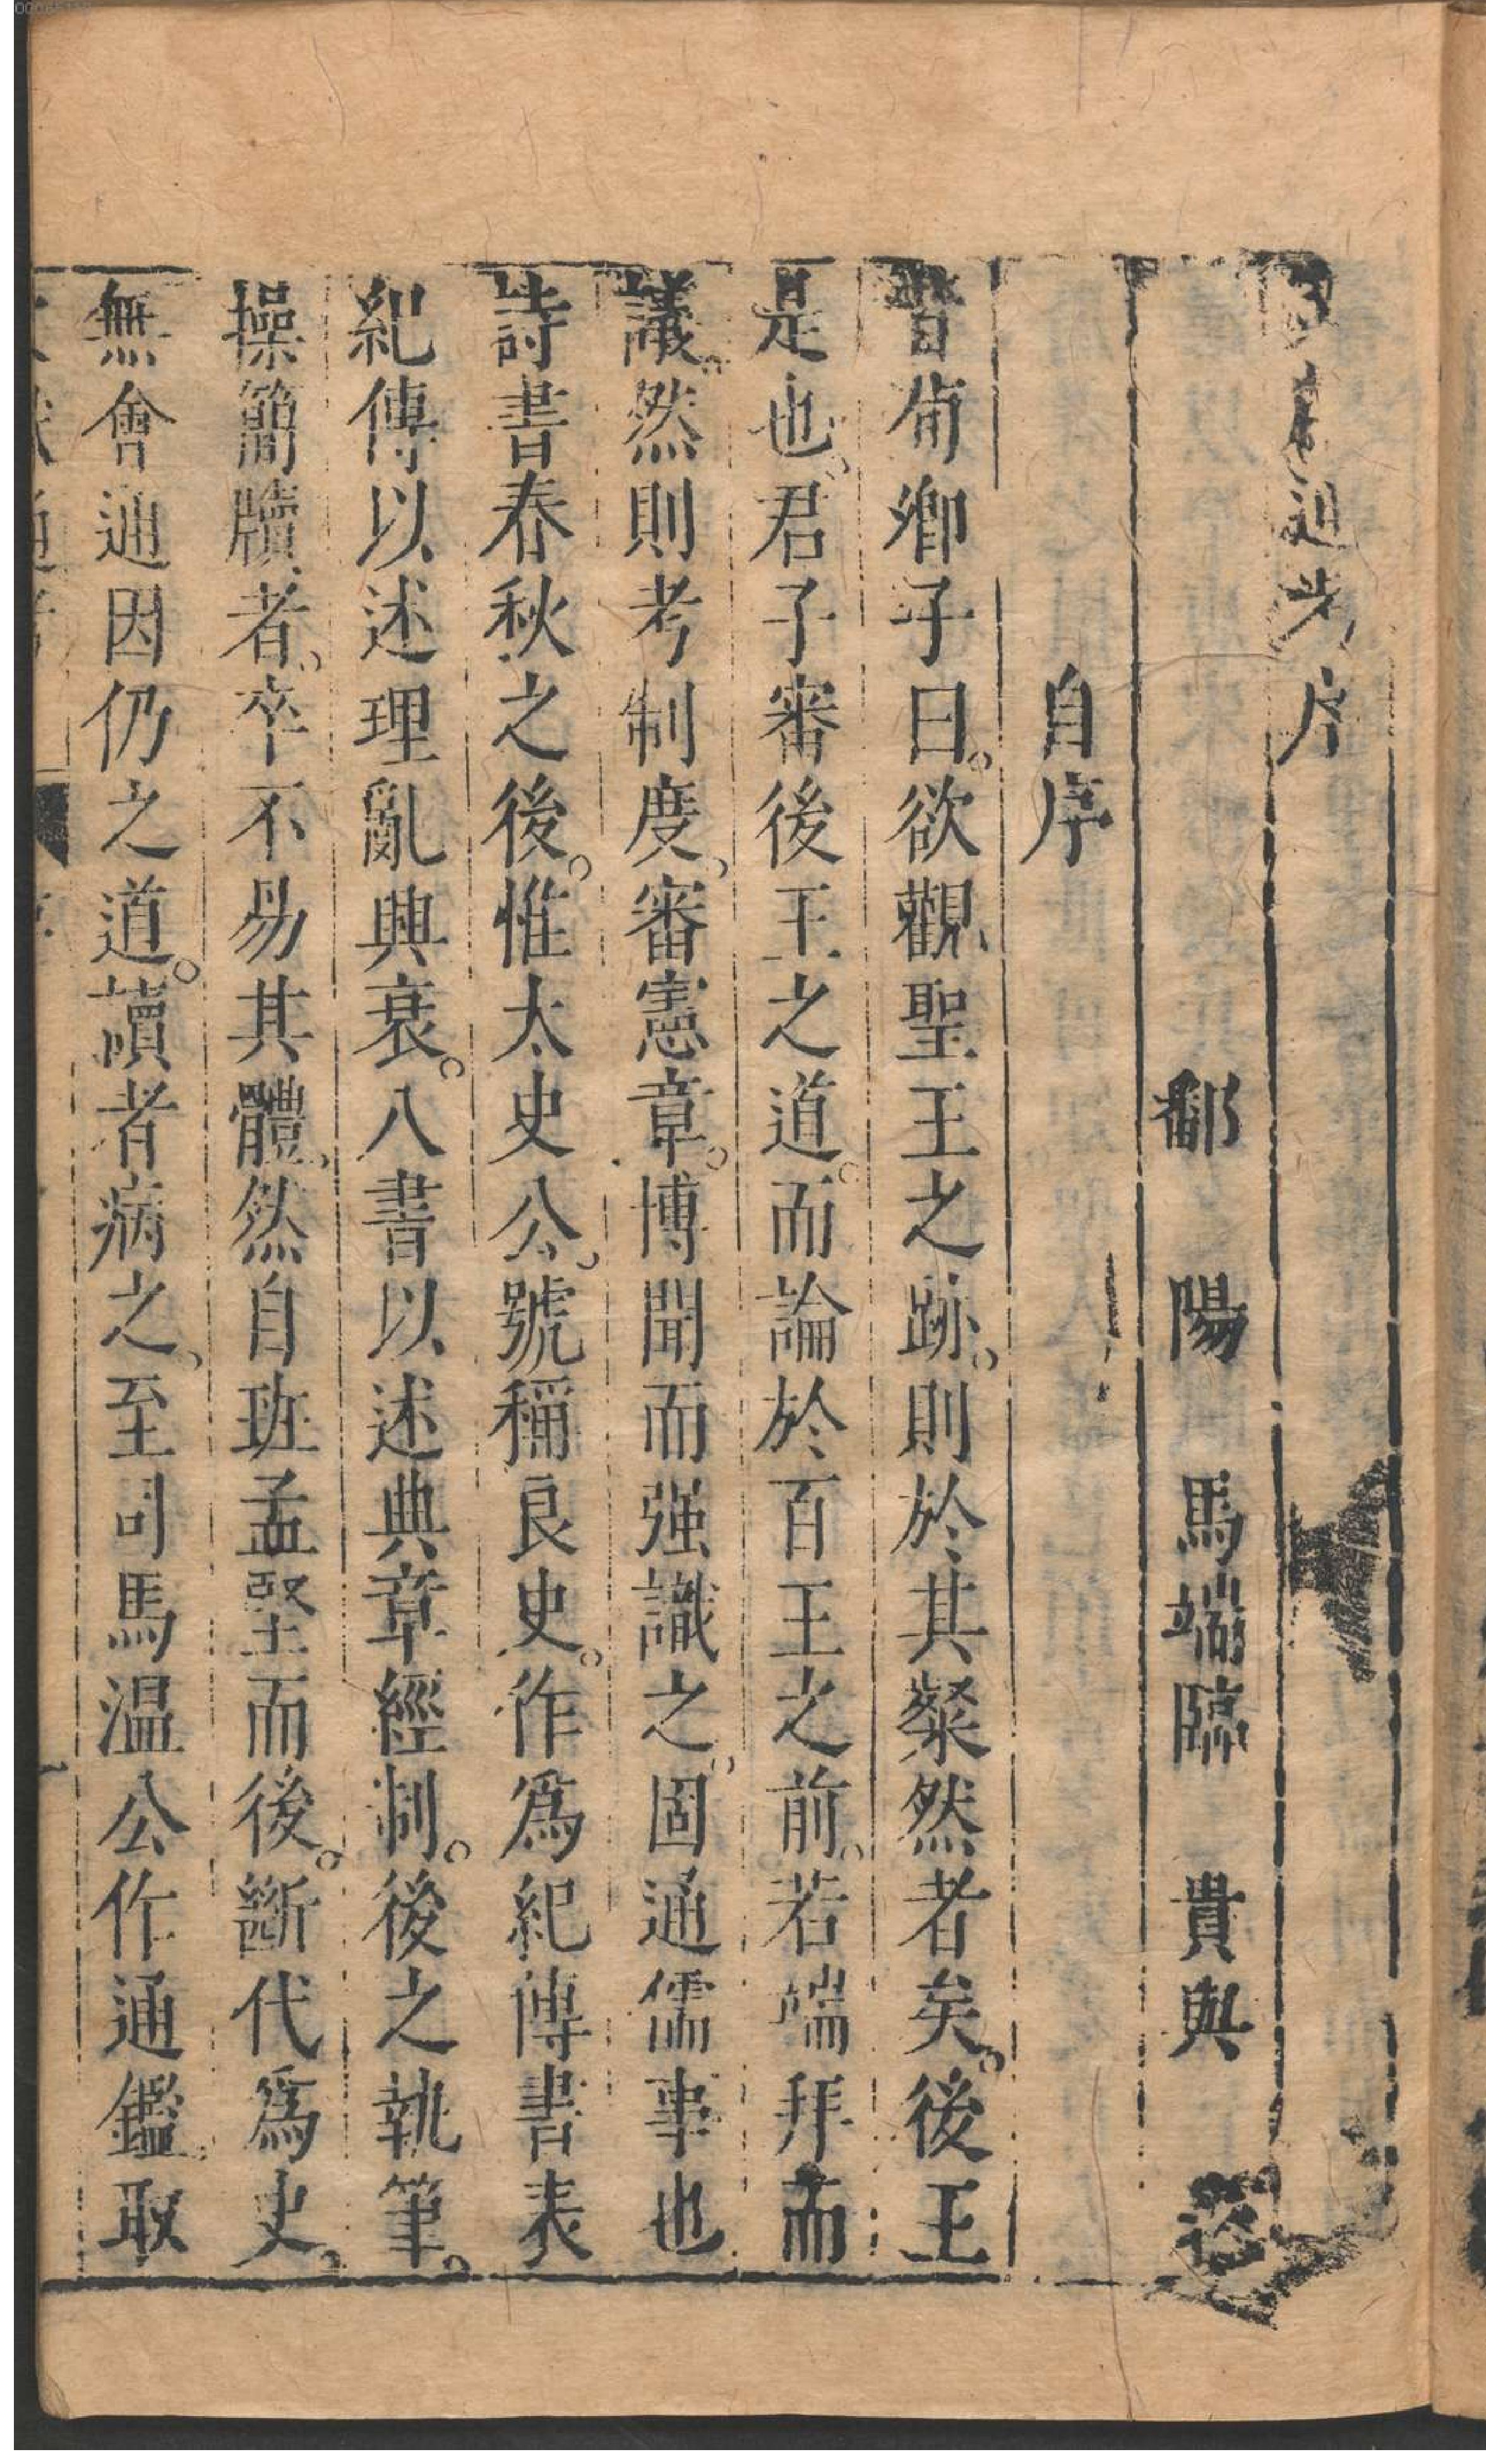 通考序
鄱陽馬端臨貴與
自序
昔荀卿子曰。欲觀聖王之跡。則於其粲然者矣。後王
是也。君子審後王之道。而論於百王之前。若端拜而
議。然則考制度。審憲章。博聞而强識之。固通儒事也
詩書春秋之後。惟太史公。號稱良史。作爲紀傳書表
紀傳以述理亂興衰。八書以述典章經制。後之執筆。
操簡牘者。卒不易其體。然自班孟堅而後。斷代爲史。
無會通因仍之道。讀者病之。至司馬温公作通鑑。取